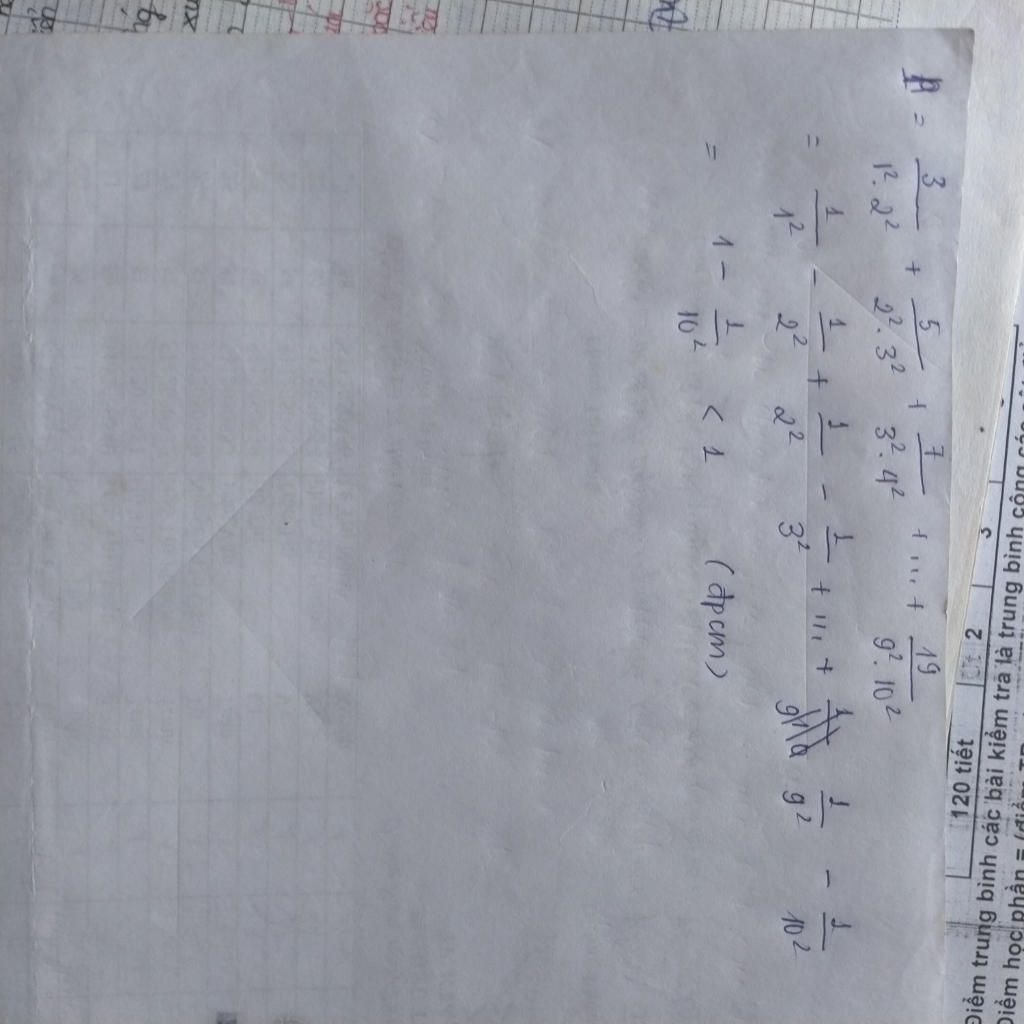 A = 3/(1². 2²) + 5/(2². 3²) + 7/(3². 4²) + ... + 19/(9². 10²)
= 1/1² - 1/2² + 1/2² - 1/3² + ... + 1/9² - 1/10²
= 1 - 1/10² < 1 (đpcm)
3
2
120 tiết
Điểm trung bình các bài kiểm tra là trung bình cộng các
Điểm học phần = (điểm